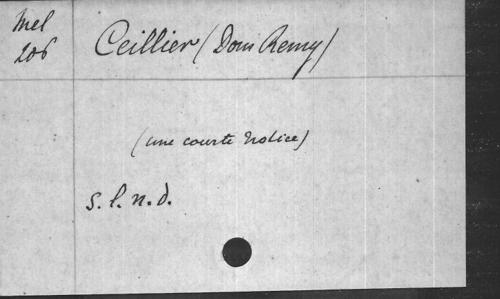 Mel
206
Ceillier (Dom Remy)
(une courte notice)
s. l. n. d.